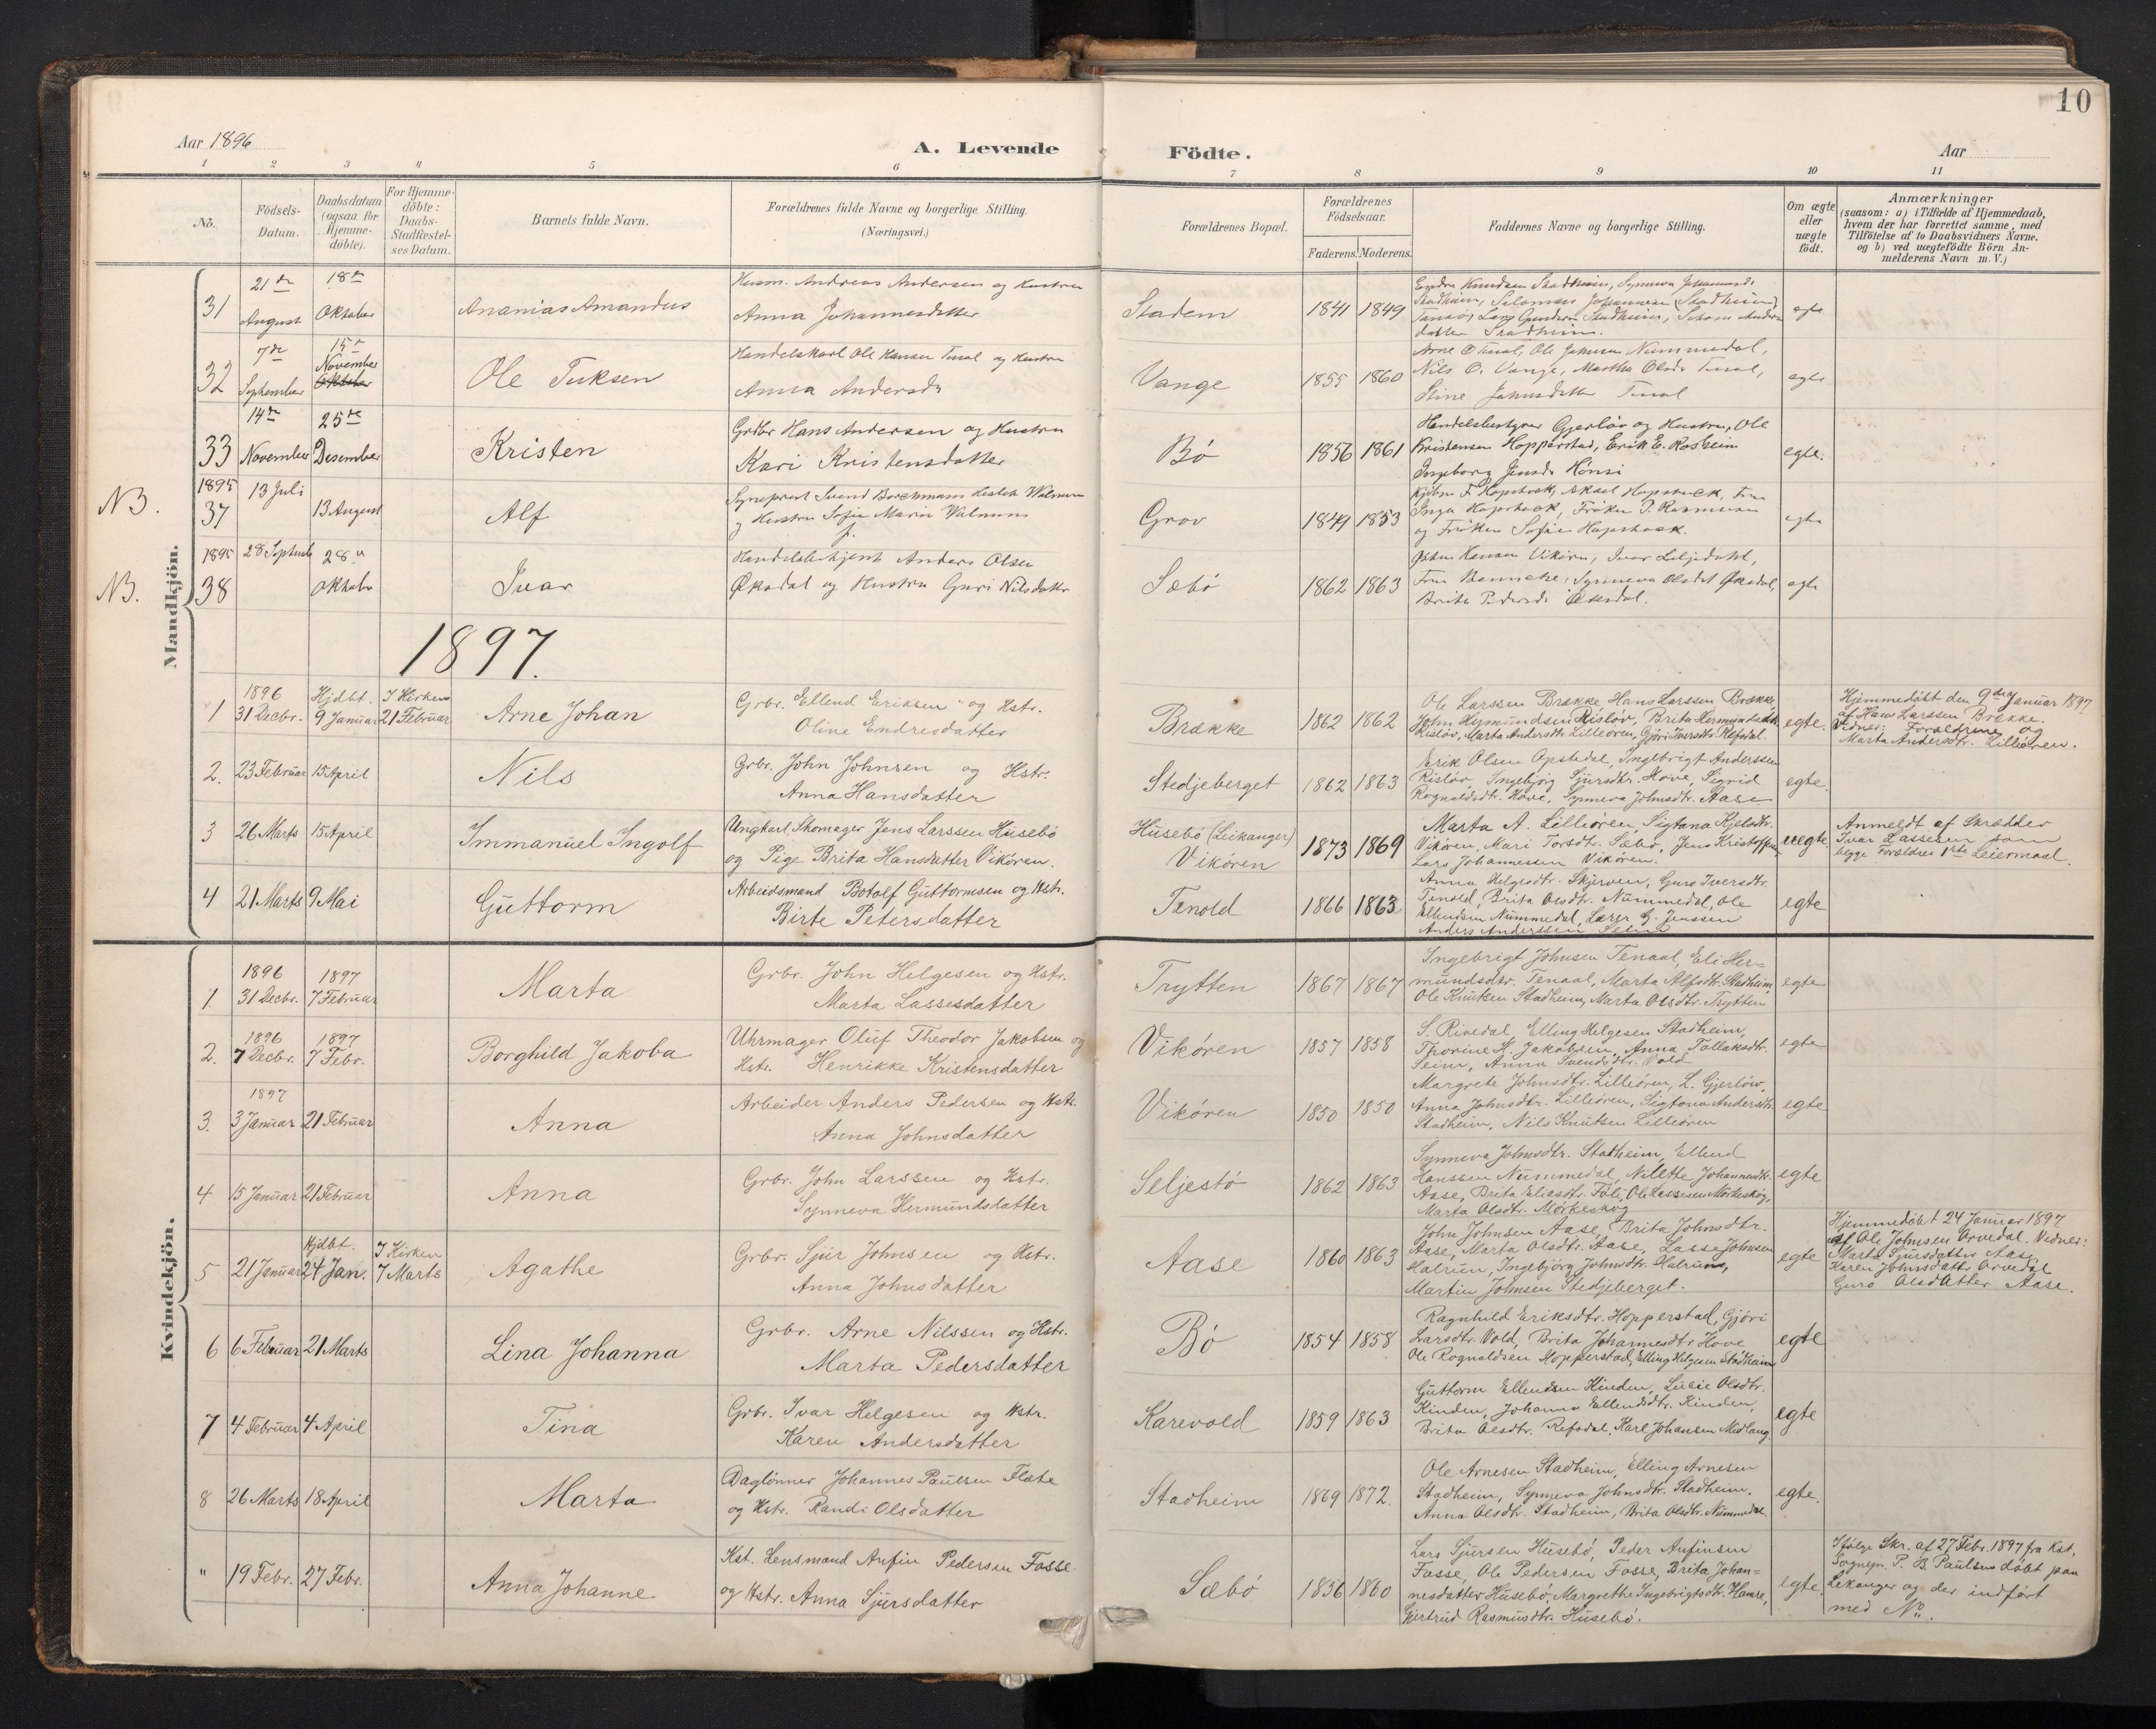 10
Aar 1896
A. Levende Födte.
Aar
1 2 3 4 5 6 7 8 9 10 11
No.
Födsels-Datum.
Daabsdatum (ogsaa for Hjemme-döbte).
For Hjemme-döbte: Daabs-Stadfæstel-ses Datum.
Barnets fulde Navn.
Forældrenes fulde Navne og borgerlige Stilling.
(Næringsvei.)
Forældrenes Bopæl.
Forældrenes Födselsaar.
Faderens. Moderens.
Faddernes Navne og borgerlige Stilling.
Om ægte eller uægte födt.
Anmærkninger
(saasom: a) i Tilfælde af Hjemmedaab, hvem der har forrettet samme, med Tilföielse af to Daabsvidners Navne. og b) ved uægtefödte Börn Anmelderens Navn m. V.)
Mandkjön.
31 21de August 18de Oktober Ananias Amandus
Husm. Andreas Andersen og Hustru
Anna Johannesdatter
Stadem 1841 1849
egte
32 7de September 15de November Oktober Ole Tuksen
Handelskarl Ole Hansen og Hustru
Anna Andersdr
Vange 1855 1860
Nils O. Vange, Martha Olsdr
egte
33 14de November 25de Desember Kristen
Grdbr Hans Andersen og Hustru
Kari Kristensdatter
Bö 1856 1861
Handelsbestyrer Gjerlöv og Hustru, Ole
Kristensen Hopperstad, Erik E.
Ingeborg Jensdr Hönsi
egte.
NB.
1895
37 13 Juli 13 August Alf
og Hustru Sofie Marie
Grov 1849 1853
og Fröken Sofie
egte
NB.
1895
38 28 Septemb 28de Oktober Ivar
Handelsbetjent Anders Olsen
Öksdal og Hustru Guri Nilsdatter
Sæbö 1862 1863
egte
1897.
1 1896 31 Decbr. Hjdbt. 9 Januar I Kirken 21 Februar Arne Johan
Grbr. Ellend Eriksen og Hstr.
Oline Endresdatter
Brække 1862 1862
Ole Larssen Brække, Hans Larssen Brække,
Risløv, Marta Andersdtr. Lilleören, Gjöri Iversdtr. Refsdal.
egte.
Hjemmedöbt den 9de Januar 1897
af Hans Larssen Brække.
Vidner: Forældrene og
Marta Andersdtr. Lilleören.
2. 23 Februar 15 April Nils
Grbr. John Johnsen og Hstr.
Anna Hansdatter
Stedjeberget 1862 1863
Erik Olsen Opstedal, Ingebrigt Anderssen
Risløv, Ingebjörg Sjursdtr. Hove, Sigrid
Rognaldsdtr. Hove, Synneva Johnsdtr. Aase
egte.
3 26 Marts 15 April Immanuel Ingolf
Ungkarl, Skomager Jens Larssen Husebö
og Pige Brita Hansdatter Vikören.
Husebö (Leikanger)
Vikören 1873 1869
Marta A. Lilleören, Sigtona Kjelsdtr.
Vikören, Mari Torsdtr. Sæbö, Jens Kristoffer
Lars Johannessen Vikören.
uegte
Anmeldt af Skrædder
Ivar Lassesen som
begge Forældres 1ste Leiermaal.
4 21 Marts 9 Mai Guttorm
Arbeidsmand Botolf Guttormsen og Hstr.
Birte Petersdatter
Tenold 1866 1863
Anna Helgesdtr. Skjerven, Guro Iversdtr.
Tenold, Brita Olsdtr. Nummedal, Ole
Ellendsen Nummedal, Lærer G. Jenssen
Anders Anderssen
egte
Kvindekjön.
1 1896 31 Decbr. 1897 7 Februar Marta
Grbr. John Helgesen og Hstr.
Marta Lassesdatter
Trytten 1867 1867
Ingebrigt Johnsen Tenaal, Eli Her=
mundsdtr. Tenaal, Marta Alfsdtr. Stadheim,
Ole Knutsen Stadheim, Marta Olsdtr. Trytten
egte
2. 1896 7 Decbr. 1897 7 Febr. Borghild Jakoba
Uhrmager Oluf Theodor Jakobsen og
Hstr. Henrikke Kristensdatter
Vikören 1857 1858
S. Rivedal, Elling Helgesen Stadheim,
Thorine H. Jakobsen, Anna Tollaksdtr.
Seim, Anna Svendsdtr. Vold
egte
3. 1897 3 Januar 21 Februar Anna
Arbeider Anders Pedersen og Hstr.
Anna Johnsdatter
Vikören 1850 1850
Margrete Johnsdtr. Lilleören, L. Gjerlöw,
Anna Johnsdtr. Lilleören, Sigtona Andersdtr.
Stadheim, Nils Knutsen Lilleören
egte
4 15 Januar 21 Februar Anna
Grbr. John Larssen og Hstr.
Synneva Hermundsdatter
Seljestö 1862 1863
Synneva Johnsdtr. Stadheim, Ellend
Hanssen Nummedal, Nilette Johannesdtr.
Aase, Brita Eliasdtr. Föli, Ole Lassesen Mörkeskog,
Marta Olsdtr. Mörkeskog
egte
5 21 Januar Hjdbt. 24 Jan. I Kirken 7 Marts Agathe
Grbr. Sjur Johnsen og Hstr.
Anna Johnsdatter
Aase 1860 1863
John Johnsen Aase, Brita Johnsdtr.
Aase, Marta Olsdtr. Aase, Lasse Johnsen
Halrun, Ingebjörg Johnsdtr. Halrun,
Martin Johnsen Stedjeberget.
egte
Hjemmedöbt 24 Januar 1897
af Ole Johnsen Arvedal. Vidner:
Marta Sjursdatter Aase
Karen Johnsdatter Arvedal
Guro Olsdatter Aase.
6 6 Februar 21 Marts Lina Johanna
Grbr. Arne Nilssen og Hstr.
Marta Pedersdatter
Bö 1854 1858
Ragnhild Eriksdtr. Hopperstad, Gjöri
Larsdtr. Vold, Brita Johannesdtr. Hove
Ole Rognaldsen Hopperstad, Elling Helgesen Stadheim
egte
7 4 Februar 4 April Tina
Grbr. Ivar Helgesen og Hstr.
Karen Andersdatter
Karevold 1859 1863
Guttorm Ellendsen Hinden, Lucie Olsdtr.
Kinden, Johanna Ellendsdtr. Kinden,
Brita Olsdtr. Refsdal, Karl Johansen Midlang.
egte
8 26 Marts 18 April Marta
Daglönner Johannes Paulsen Flæte
og Hstr. Randi Olsdatter
Stadheim 1869 1872.
Ole Arnesen Stadheim, Elling Arnesen
Stadheim, Synneva Johnsdtr. Stadheim,
Anna Olsdtr. Stadheim, Brita Olsdtr. Nummedal
egte.
" 19 Febr. 27 Febr. Anna Johanne
Kst. Lensmand Anfin Pedersen Fosse
og Hstr. Anna Sjursdatter
Sæbö 1856 1860
Lars Sjursen Husebö, Peder Anfinsen
Fosse, Ole Pedersen Fosse, Brita Johan=
nesdatter Husebö, Margrethe Ingebrigtsdtr. Hamre,
Gjertrud Rasmusdtr. Husebö.
egte.
Ifölge Skr. af 27 Febr. 1897 fra Kst.
Sognepr. P. B. Paulsen döbt paa
Lekanger og der indfört
med No.